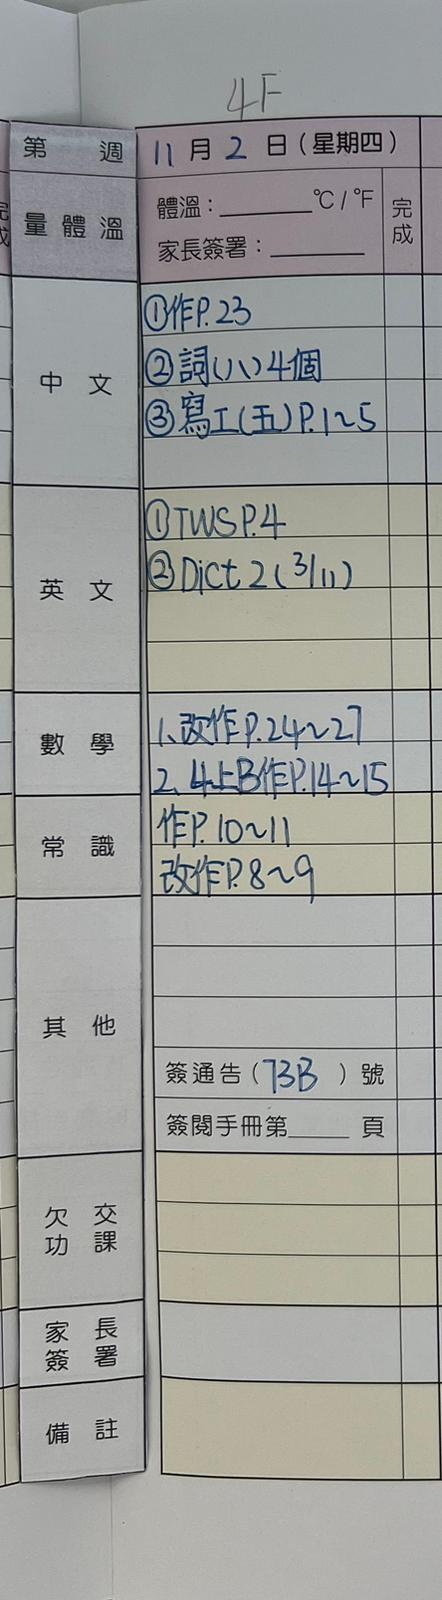 4F
第 週 11月2日(星期四)
量體溫 體溫:______°C/°F 完成
家長簽署:______
中文 ①作P.23
②詞(八)4個
③寫工(五)P.1~5
英文 ①TWS P.4
②Dict 2 (3/11)
數學 1.改作P.24~27
2.4上B作P.14~15
常識 作P.10~11
改作P.8~9
其他
簽通告(73B)號
簽閱手冊第____頁
欠交功課
家長簽署
備註